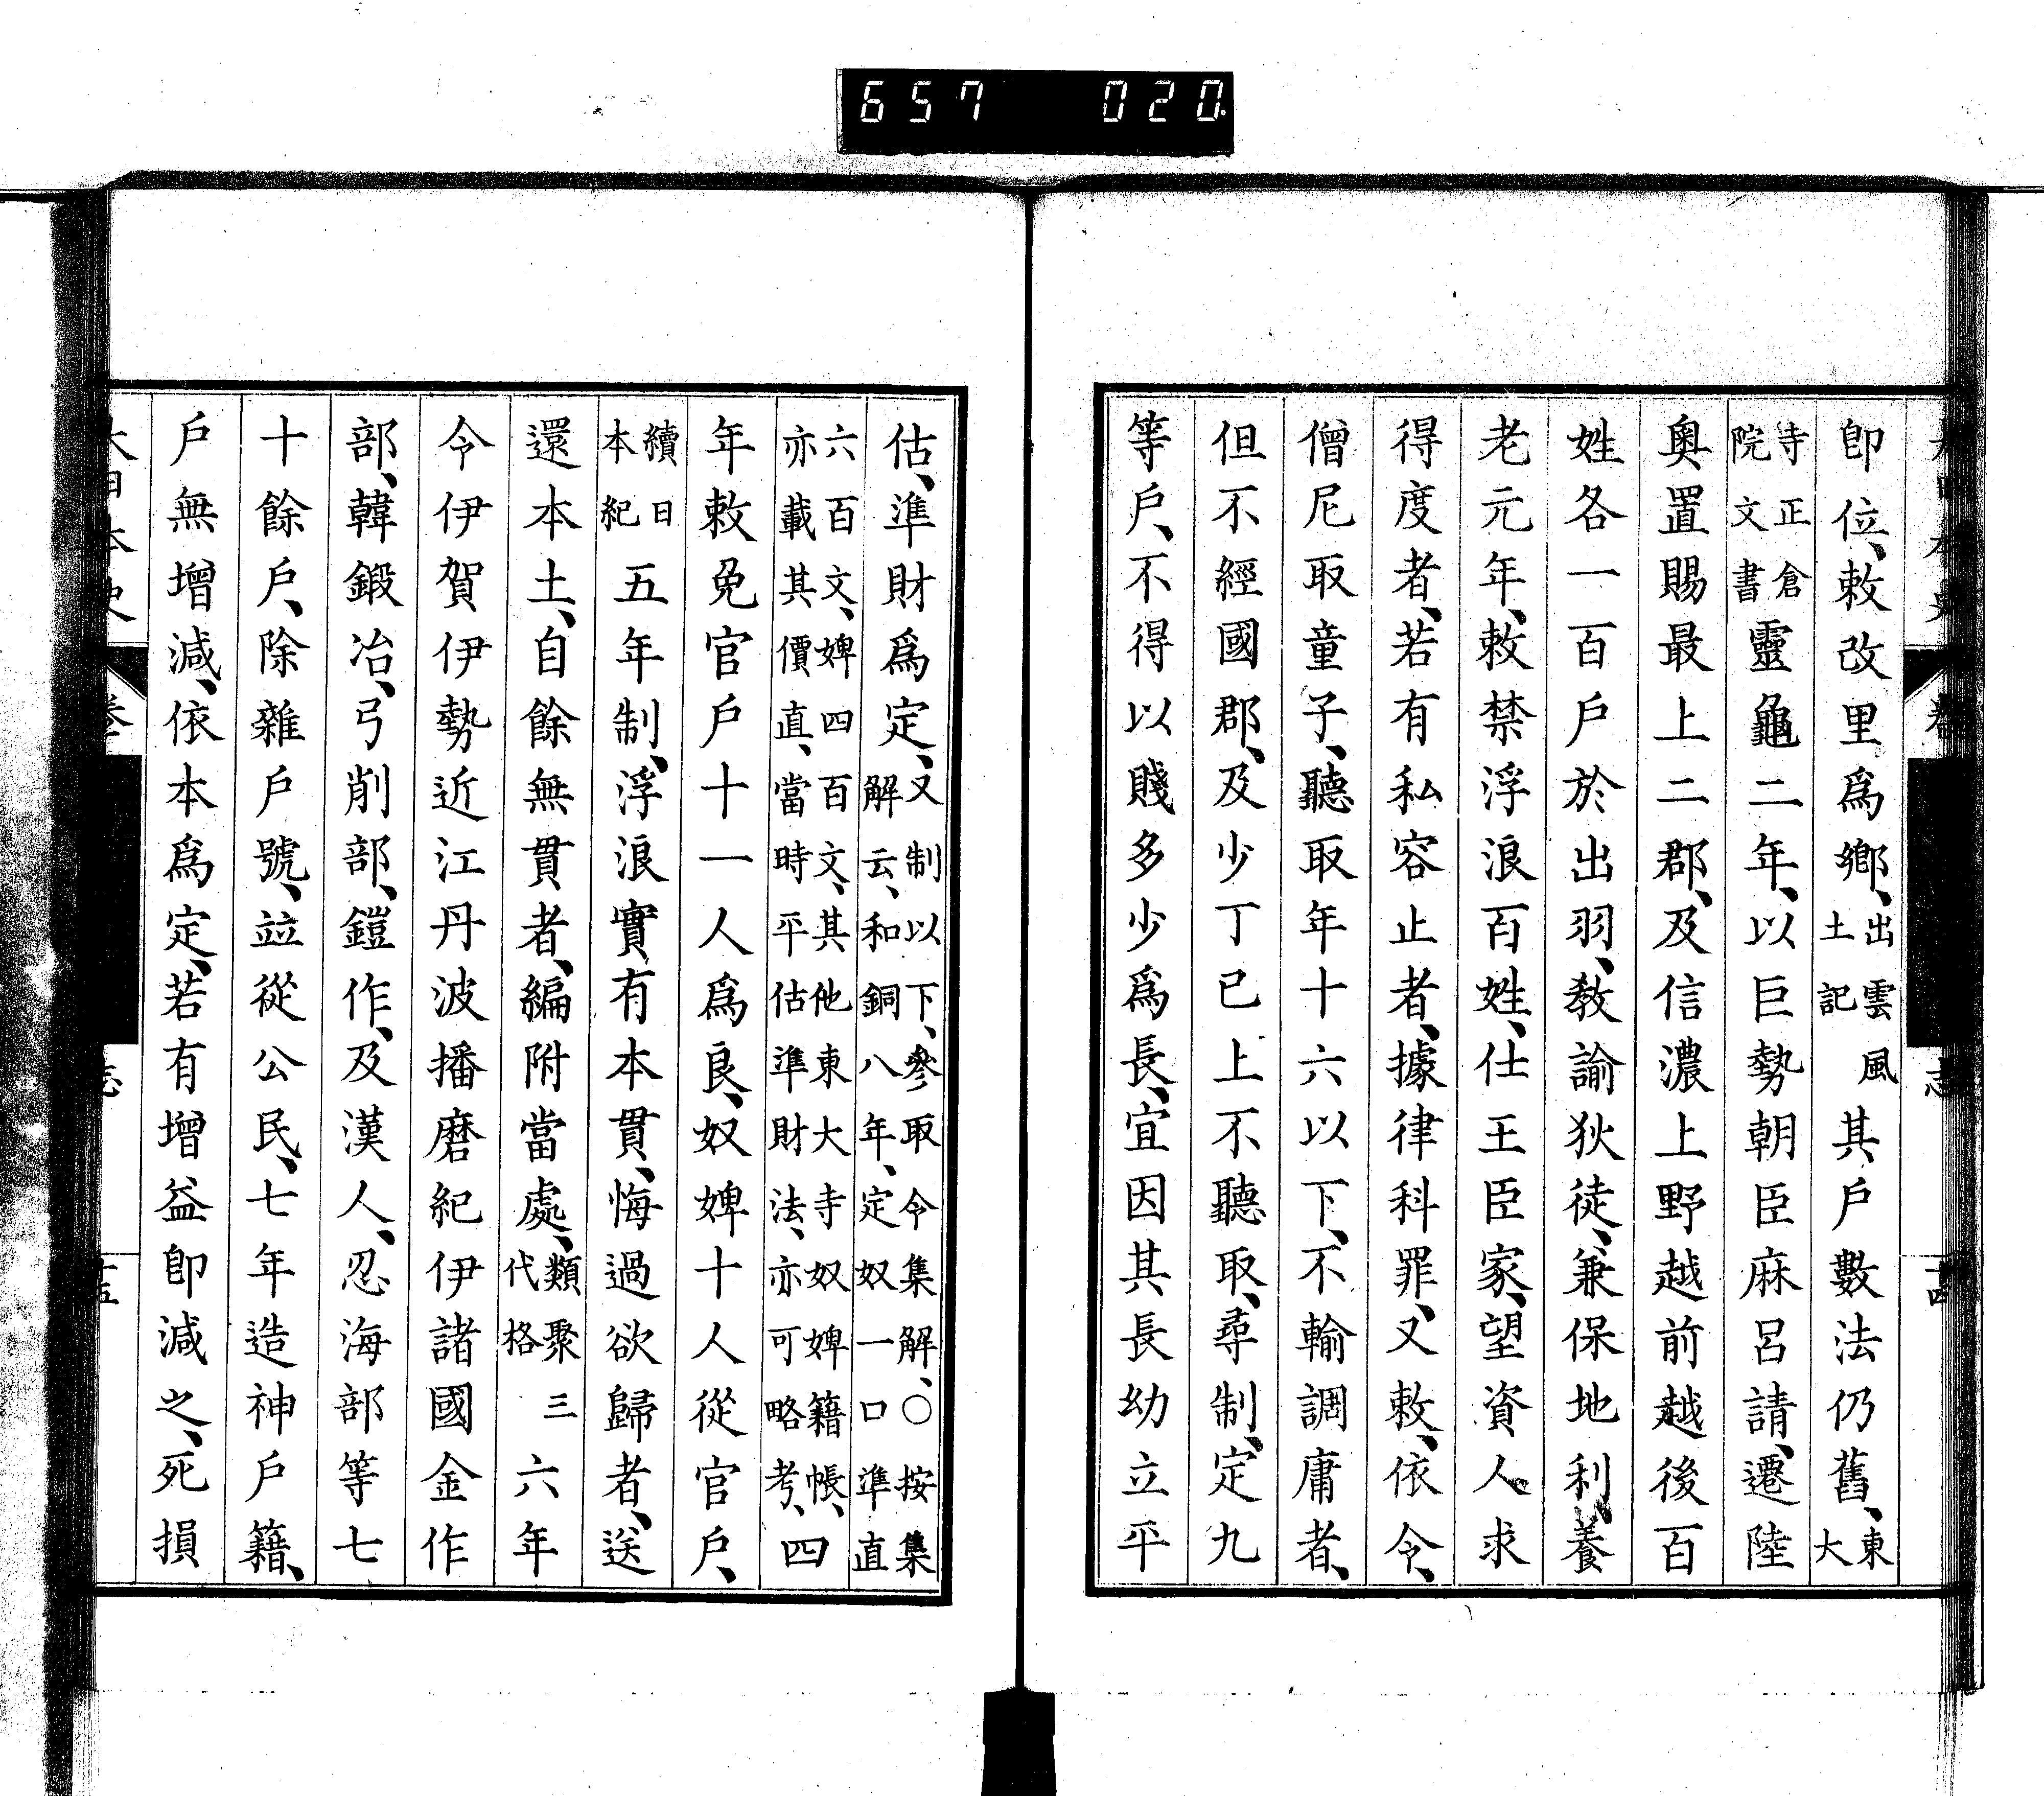 657 020
即位、敕改里爲鄉、出雲風土記其戶數法仍舊、東大
寺正倉院文書靈龜二年、以巨勢朝臣麻呂請、遷陸
奧置賜最上二郡、及信濃上野越前越後百
姓各一百戶於出羽、教諭狄徒、兼保地利、養
老元年、敕禁浮浪百姓、仕王臣家、望資人求
得度者、若有私容止者、據律科罪、又敕、依令、
僧尼取童子、聽取年十六以下、不輸調庸者、
但不經國郡、及少丁已上不聽取、尋制、定九
等戶、不得以賤多少爲長、宜因其長長幼立平
估、準財爲定、又制以下、參取令集解、○按集解云、和銅八年、定奴一口準直
六百文、婢四百文、其他東大寺奴婢籍帳、亦載其價直、當時平估準財法、亦可略考、四
年敕免官戶十一人爲良、奴婢十人從官戶、
續日本紀五年制、浮浪實有本貫、悔過欲歸者、送
還本土、自餘無貫者、編附當處、類聚三代格六年
令伊賀伊勢近江丹波播磨紀伊諸國金作
部、韓鍛冶、弓削部、鎧作、及漢人、忍海部等七
十餘戶、除雜戶號、竝從公民、七年造神戶籍、
戶無增減、依本爲定、若有增益卽減之、死損
大日本史 卷 志 十五